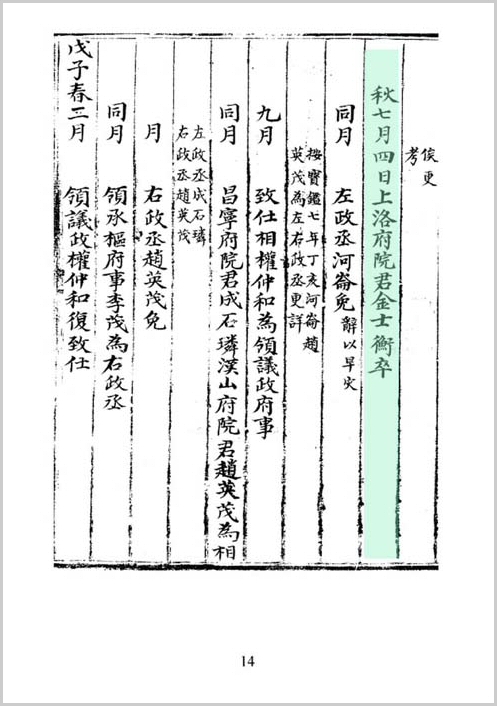 俟更
考
秋七月四日上洛府院君金士衡卒
同月 左政丞河崙免 辭以旱灾
按寶鑑七年丁亥河崙趙
英茂為左右政丞更詳
九月 致仕相權仲和為領議政府事
同月 昌寧府院君成石璘漢山府院君趙英茂為相
左政丞成石璘
右政丞趙英茂
月 右政丞趙英茂免
同月 領承樞府事李茂為右政丞
戊子春二月 領議政權仲和復致仕
14